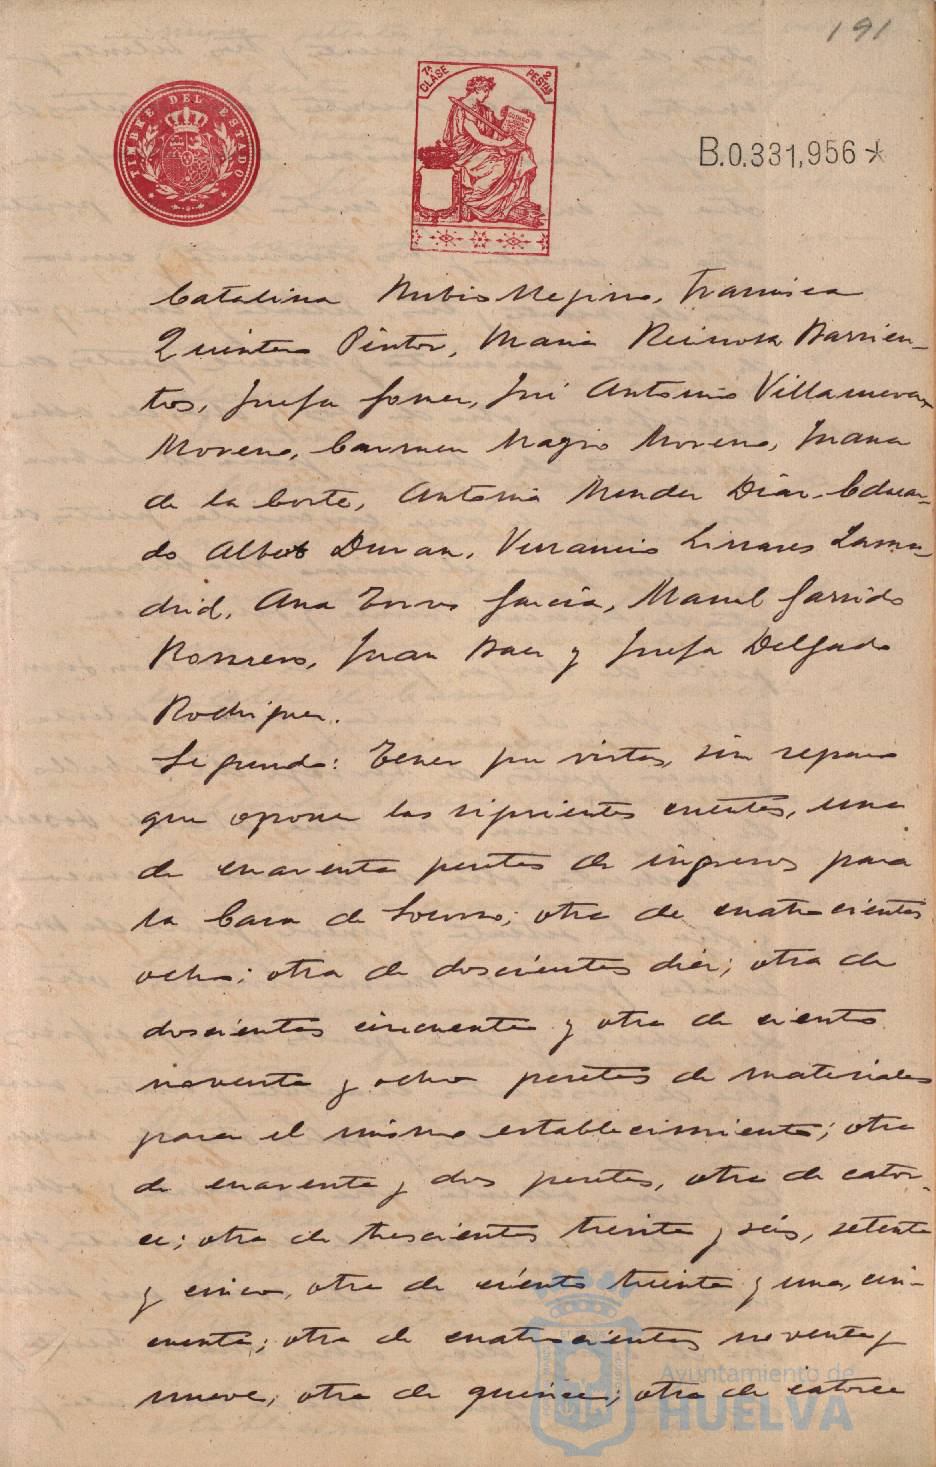 191
TIMBRE DEL ESTADO
7ª CLASE 2 PESETAS
B.0.331,956 *
Catalina Rubio Mejino, Francisca
Quintero Pintor, Maria Reinosa Barrien-
tos, Josefa Gomez, José Antonio Villanueva
Moreno, Carmen Magro Moreno, Juana
de la Corte, Antonia Mendez Diaz, Eduar-
do Albot Duran, Venancio Linares Lama-
drid, Ana Torres Garcia, Manuel Garrido
Romero, Juan Baez y Josefa Delgado
Rodriguez.
Segundo: Tener por vistas, sin reparo
que oponer las siguientes cuentas, una
de cuarenta pesetas de ingresos para
la Casa de Socorro; otra de cuatrocientos
ocho; otra de doscientos diez; otra de
doscientos cincuenta y otra de ciento
noventa y ocho pesetas de materiales
para el mismo establecimiento; otra
de cuarenta y dos pesetas, otra de cator-
ce; otra de trescientos treinta y seis, setenta
y cinco, otra de ciento treinta y una, cin-
cuenta; otra de cuatrocientos noventa y
nueve; otra de quince; otra de catorce
Ayuntamiento de
HUELVA